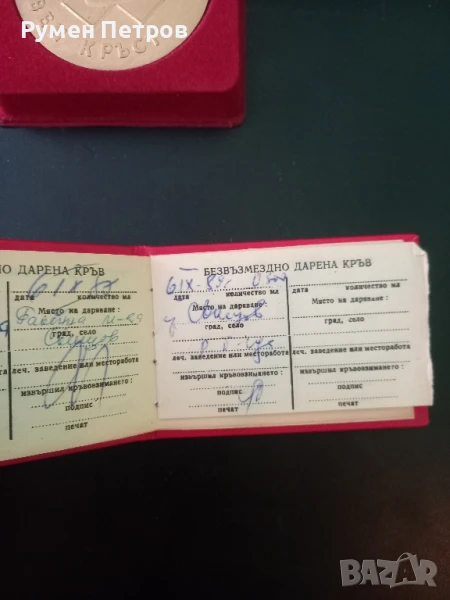 Румен Петров
ВЕН КРЪСТ
НО ДАРЕНА КРЪВ
дата количество мл
Място на даряване :
град, село
Свищов
леч. заведение или месторабота
извършил кръвовземането :
подпис
печат
БЕЗВЪЗМЕЗДНО ДАРЕНА КРЪВ
6 IX
дата количество мл
Място на даряване :
Свищов
град, село
леч. заведение или месторабота
извършил кръвовземането :
подпис
печат
дата количество мл
Място на даряване :
град, село
леч. заведение или месторабота
извършил кръвовземането :
подпис
печат
bazar